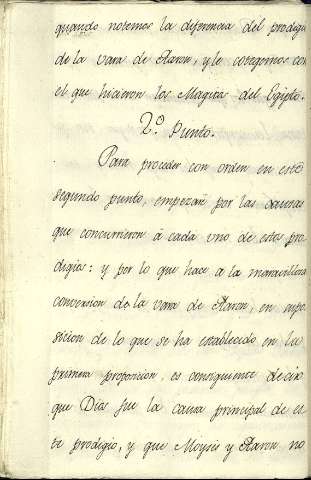 quando notemos la diferencia del prodigi
de la vara de Aaron, y le cotegemos con
el que hicieron los Magos del Egipto.
2.º Punto.
Para proceder con orden en este
segundo punto, empezaré por las causas
que concurrieron á cada uno de estos pro
digios: y por lo que hace a la maravillosa
conversion de la vara de Aaron, en supo
sicion de lo que se ha establecido en la
primera proposicion, es consiguiente decir
que Dios fue la causa principal de es
te prodigio, y que Moyses y Aaron no